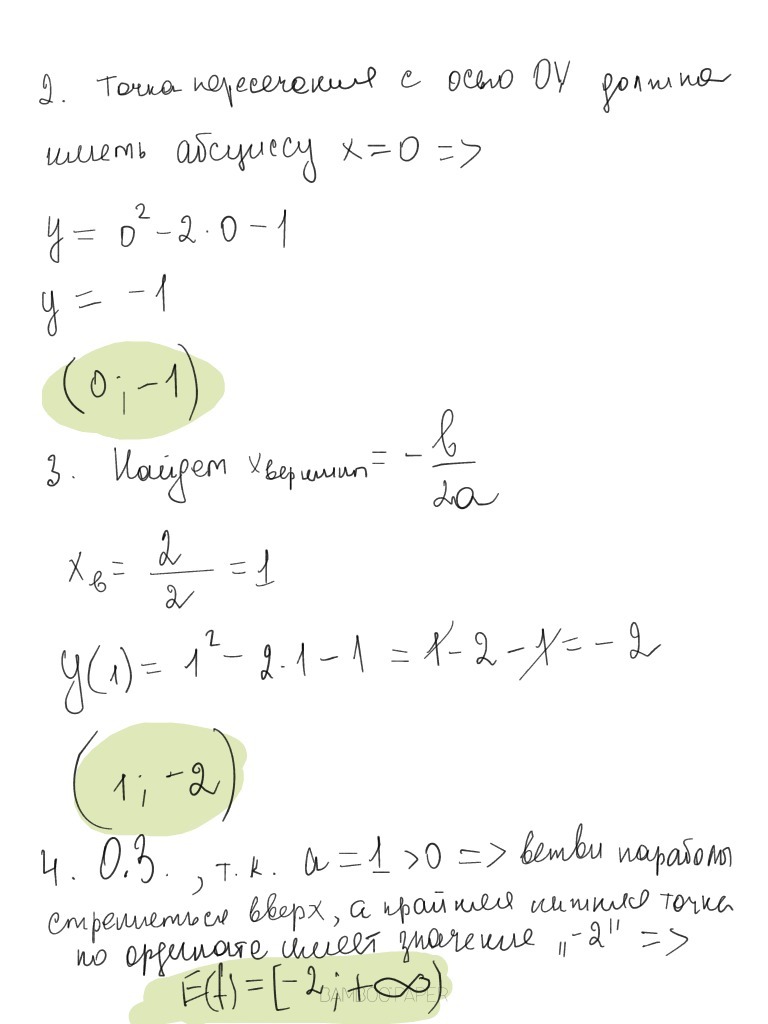 2. Точка пересечения с осью OY должна
иметь абсциссу x = 0 =>
y = 0² - 2 · 0 - 1
y = -1
(0; -1)
3. Найдем x вершин = - b/2a
xв = 2/2 = 1
y(1) = 1² - 2 · 1 - 1 = 1 - 2 - 1 = -2
(1; -2)
4. О.З., т.к. a = 1 > 0 => ветви параболы
стремиться вверх, а крайняя нижняя точка
по ординате имеет значение „-2" =>
E(f) = [-2; +∞)
BAMBOO PAPER